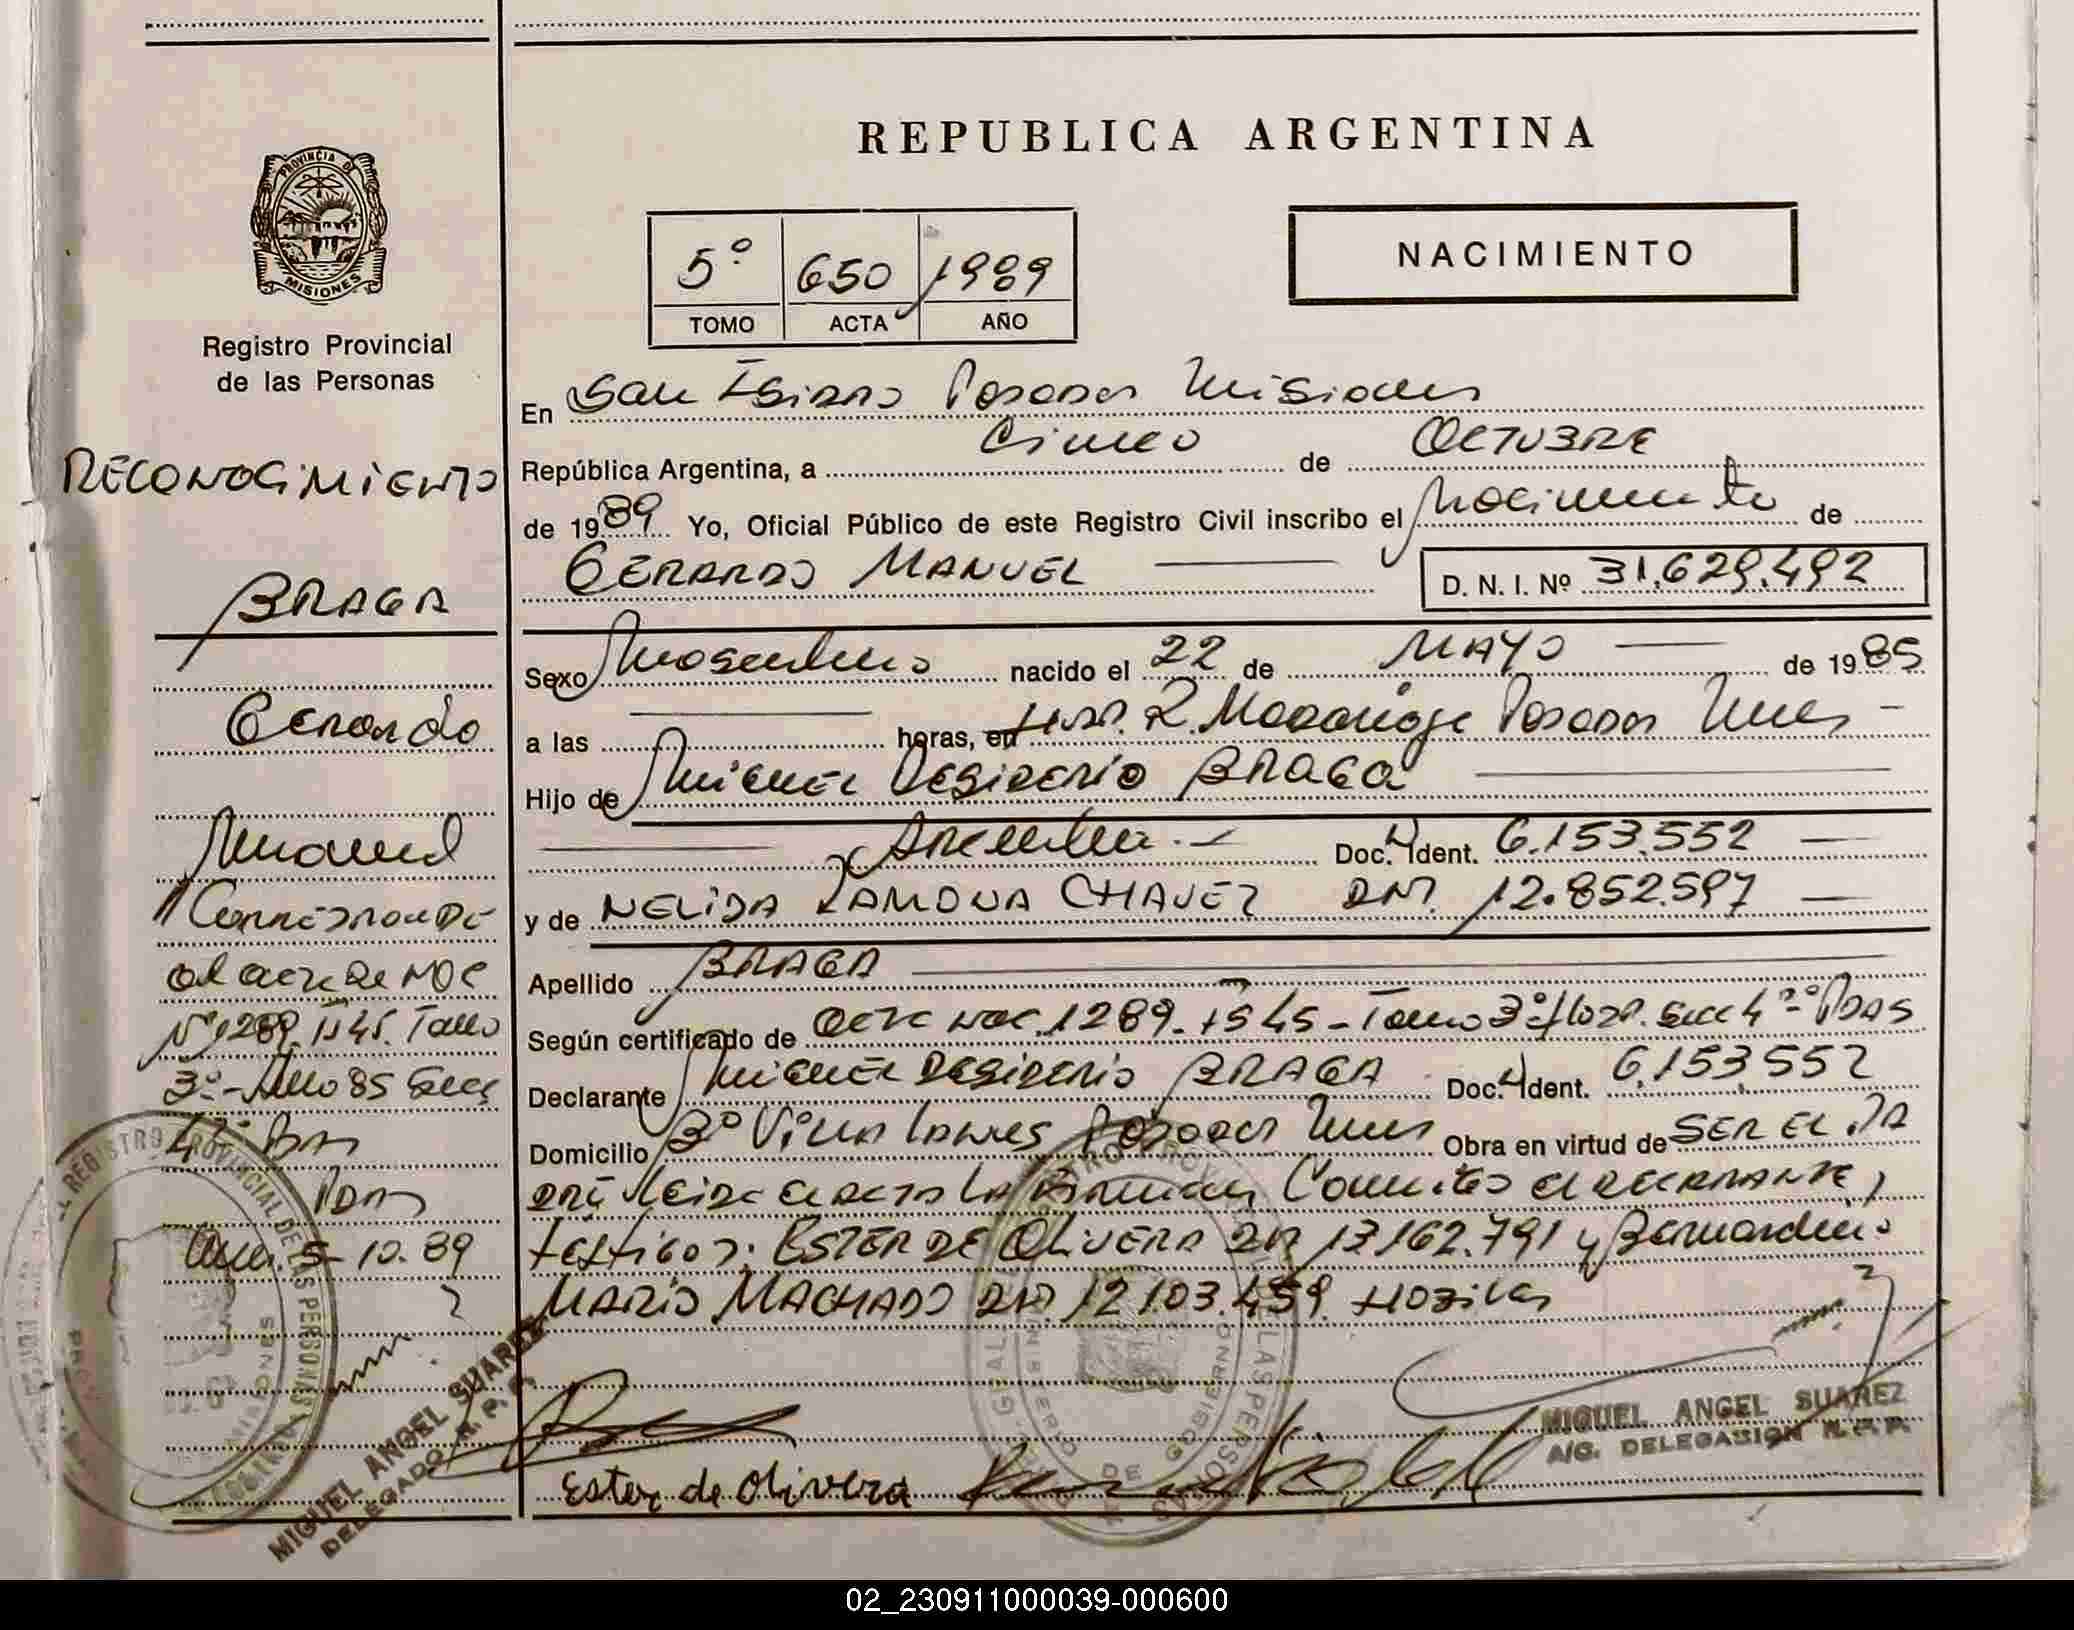 REPUBLICA ARGENTINA
NACIMIENTO
5º 650 1989
TOMO ACTA AÑO
PROVINCIA DE
MISIONES
Registro Provincial
de las Personas
RECONOCIMIENTO
BRAGA
Gerardo
Manuel
Corresponde
al acta de NAC
Nº 1289. Fº 45. Tomo
3º - Año 85 Secc
4º
Pdas
5-10-89
MIGUEL ANGEL SUAREZ
DELEGADO R. P. P.
En San Isidro Posadas Misiones
República Argentina, a Cinco de OCTUBRE
de 1989 Yo, Oficial Público de este Registro Civil inscribo el Nacimiento de
GERARDO MANUEL D. N. I. Nº 31.629.492
Sexo Masculino nacido el 22 de MAYO de 1985
a las horas, en Hosp. R. Madariaga Posadas Mnes
Hijo de MIGUEL DESIDERIO BRAGA
Argentino. - Doc. Ident. 6.153.552
y de NELIDA RAMONA CHAVEZ DNI. 12.852.597
Apellido BRAGA
Según certificado de Acta NAC. 1289 - Fº 45 - Tomo 3º Secc 4º Pdas
Declarante MIGUEL DESIDERIO BRAGA Doc. Ident. 6.153.552
Domicilio Bº Villa Lanus Posadas Mnes Obra en virtud de SER EL PA
DRE Leida el acta la firman Conmigo el declarante,
testigos: ESTER DE OLIVERA DNI 13.162.791 y Bernardino
MARIO MACHADO DNI. 12.103.459. Hábiles
Ester de Olivera
MIGUEL ANGEL SUAREZ
A/C. DELEGASION R. P. P.
02_230911000039-000600